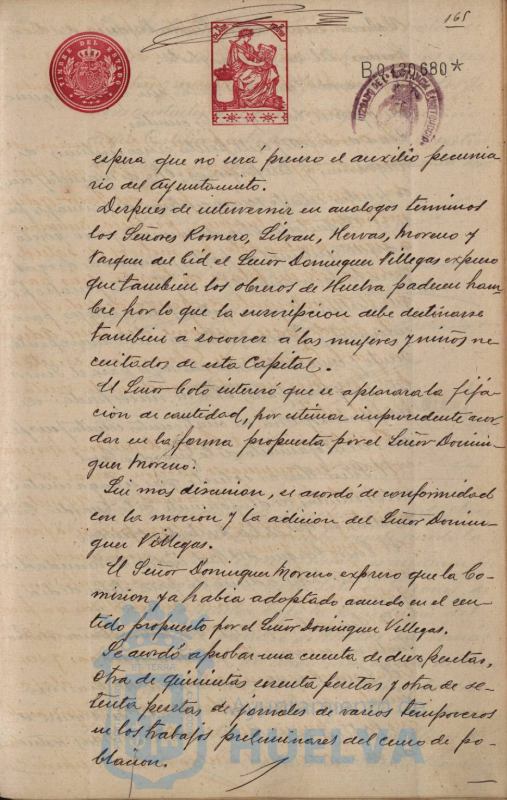 165
TIMBRE DEL ESTADO
B0.120.680*
espera que no será preciso el auxilio pecunia-
rio del Ayuntamiento.
Despues de intervernir en analogos terminos
los Señores Romero, Silvan, Hervas, Moreno y
Vazquez del Cid el Señor Dominguez Villegas expreso
que tambien los obreros de Huelva padecen ham-
bre por lo que la suscripcion debe destinarse
tambien á socorrer á las mujeres y niños ne
cesitados de esta Capital.
El Señor Coto interesó que se aplazara la fija
cion de cantidad, por estimar improcedente acor
dar en la forma propuesta por el Señor Domin-
guez Moreno.
Sin más discusion, se acordó de conformidad
con la mocion y la adicion del Señor Domin-
guez Villegas.
El Señor Dominguez Moreno, expreso que la Co-
mision, ya habia adoptado acuerdo en el sen-
tido propuesto por el Señor Dominguez Villegas.
Se acordó aprobar una cuenta de diez pesetas,
otra de quinientas pesetas y otra de se-
tenta pesetas de jornales de varios temporeros
en los trabajos preliminares del censo de po-
blacion.
Ayuntamiento de
HUELVA